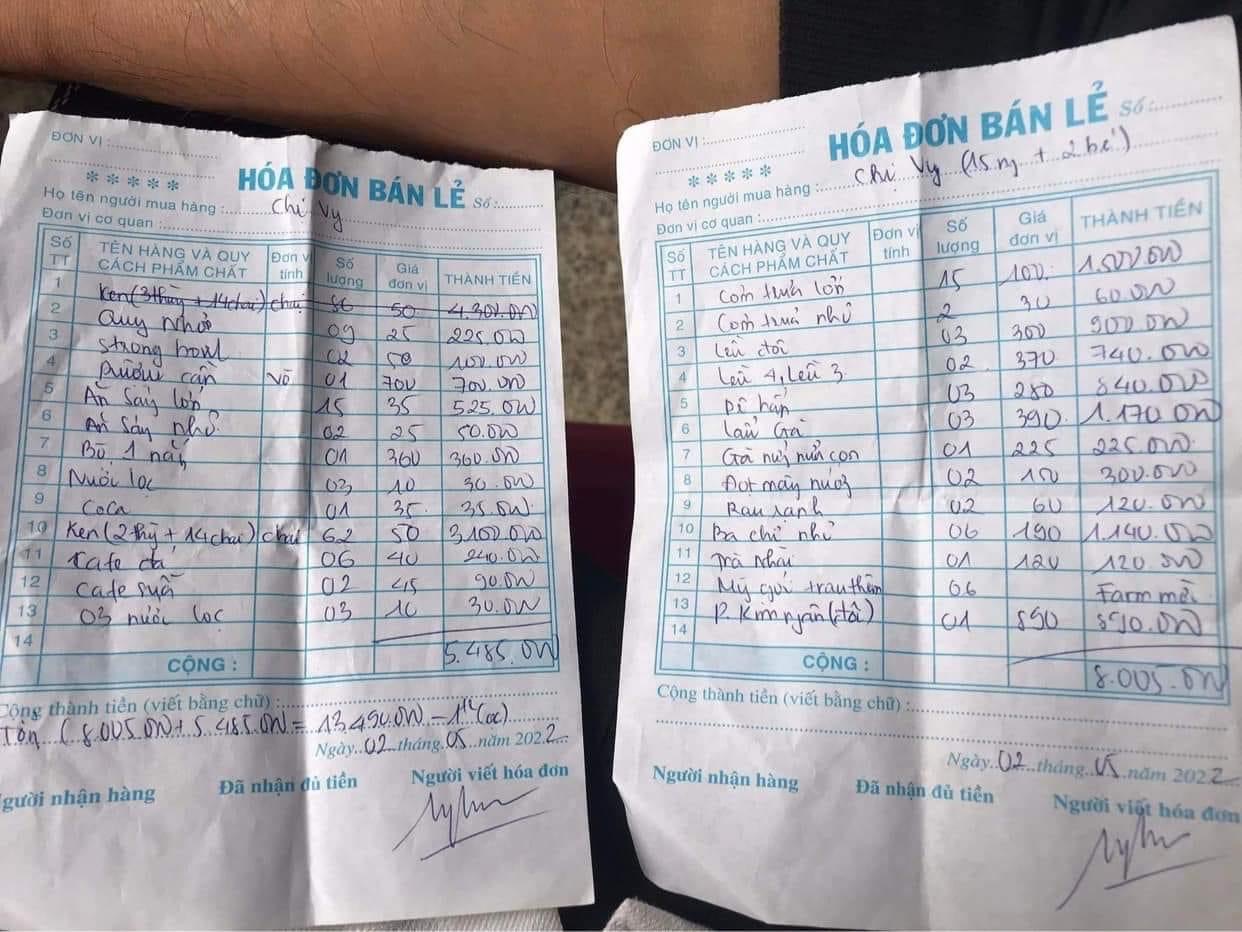 ĐƠN VỊ :
* * * * *
HÓA ĐƠN BÁN LẺ Số :
Họ tên người mua hàng : Chị Vy
Đơn vị cơ quan :
Số TT TÊN HÀNG VÀ QUY CÁCH PHẨM CHẤT Đơn vị tính Số lượng Giá đơn vị THÀNH TIỀN
1 Ken (3 thùng + 14 chai) chai 86 50 4.300.000
2 Quy Nhơn 09 25 225.000
3 Strong bowl 02 50 100.000
4 Rượu cần Vò 01 700 700.000
5 Ăn sáng lớn 15 35 525.000
6 Ăn sáng nhỏ 02 25 50.000
7 Bò 1 nắng 01 360 360.000
8 Nước lọc 03 10 30.000
9 Coca 01 35 35.000
10 Ken (2 thg + 14 chai) chai 62 50 3.100.000
11 Cafe đá 06 40 240.000
12 Cafe sữa 02 45 90.000
13 03 nước lọc 03 10 30.000
14
CỘNG : 5.485.000
Cộng thành tiền (viết bằng chữ) :
(8.005.000 + 5.485.000 = 13.490.000 - 1tr (cọc)
Ngày 02 tháng 05 năm 2022
Người nhận hàng Đã nhận đủ tiền Người viết hóa đơn
ĐƠN VỊ :
* * * * *
HÓA ĐƠN BÁN LẺ Số :
Họ tên người mua hàng : Chị Vy (15 ng + 2 bé)
Đơn vị cơ quan :
Số TT TÊN HÀNG VÀ QUY CÁCH PHẨM CHẤT Đơn vị tính Số lượng Giá đơn vị THÀNH TIỀN
1 Cơm trưa lớn 15 100 1.500.000
2 Cơm trưa nhỏ 2 30 60.000
3 Lều đôi 03 300 900.000
4 Lều 4, Lều 3 02 370 740.000
5 Dê hấp 03 280 840.000
6 Lẩu Gà 03 390 1.170.000
7 Gà nướng con 01 225 225.000
8 Đọt mây nướng 02 150 300.000
9 Rau rảnh 02 60 120.000
10 Ba chỉ 06 190 1.140.000
11 Trà Nhài 01 120 120.000
12 Mỳ gói trau thêm 06 Farm mời
13 P. Kim ngân (đôi) 01 890 890.000
14
CỘNG : 8.005.000
Cộng thành tiền (viết bằng chữ) :
Ngày 02 tháng 05 năm 2022
Người nhận hàng Đã nhận đủ tiền Người viết hóa đơn